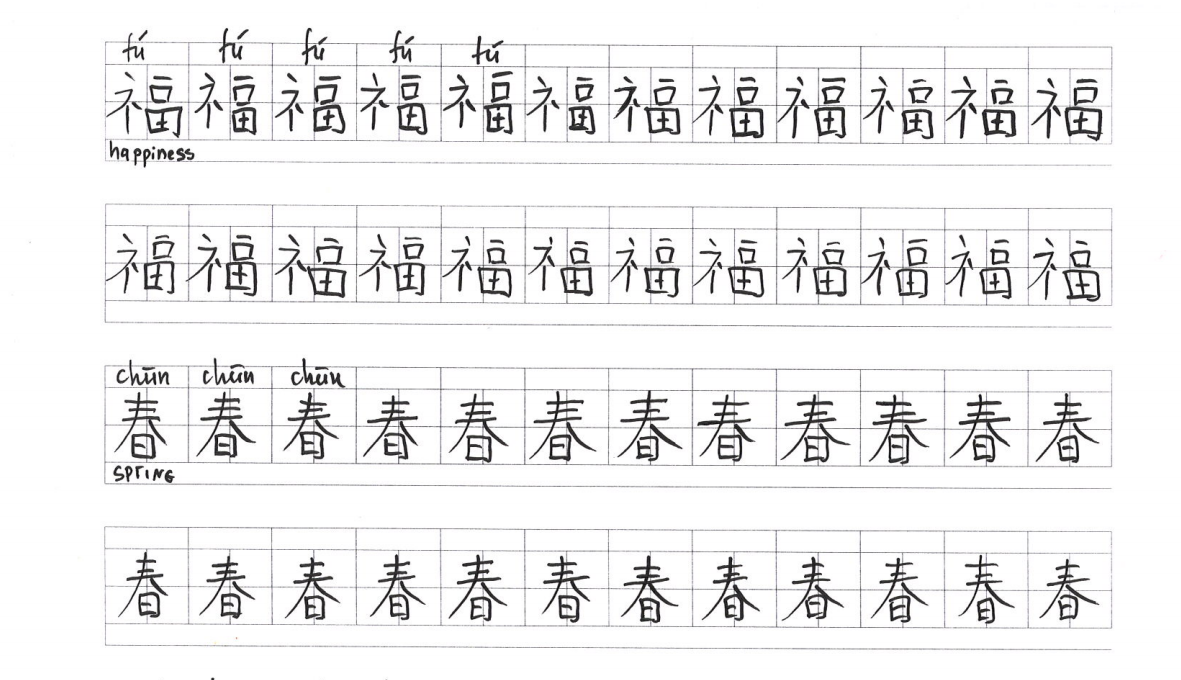 fú fú fú fú fú
福 福 福 福 福 福 福 福 福 福 福 福
happiness
福 福 福 福 福 福 福 福 福 福 福 福
chūn chūn chūn
春 春 春 春 春 春 春 春 春 春 春 春
SPrING
春 春 春 春 春 春 春 春 春 春 春 春